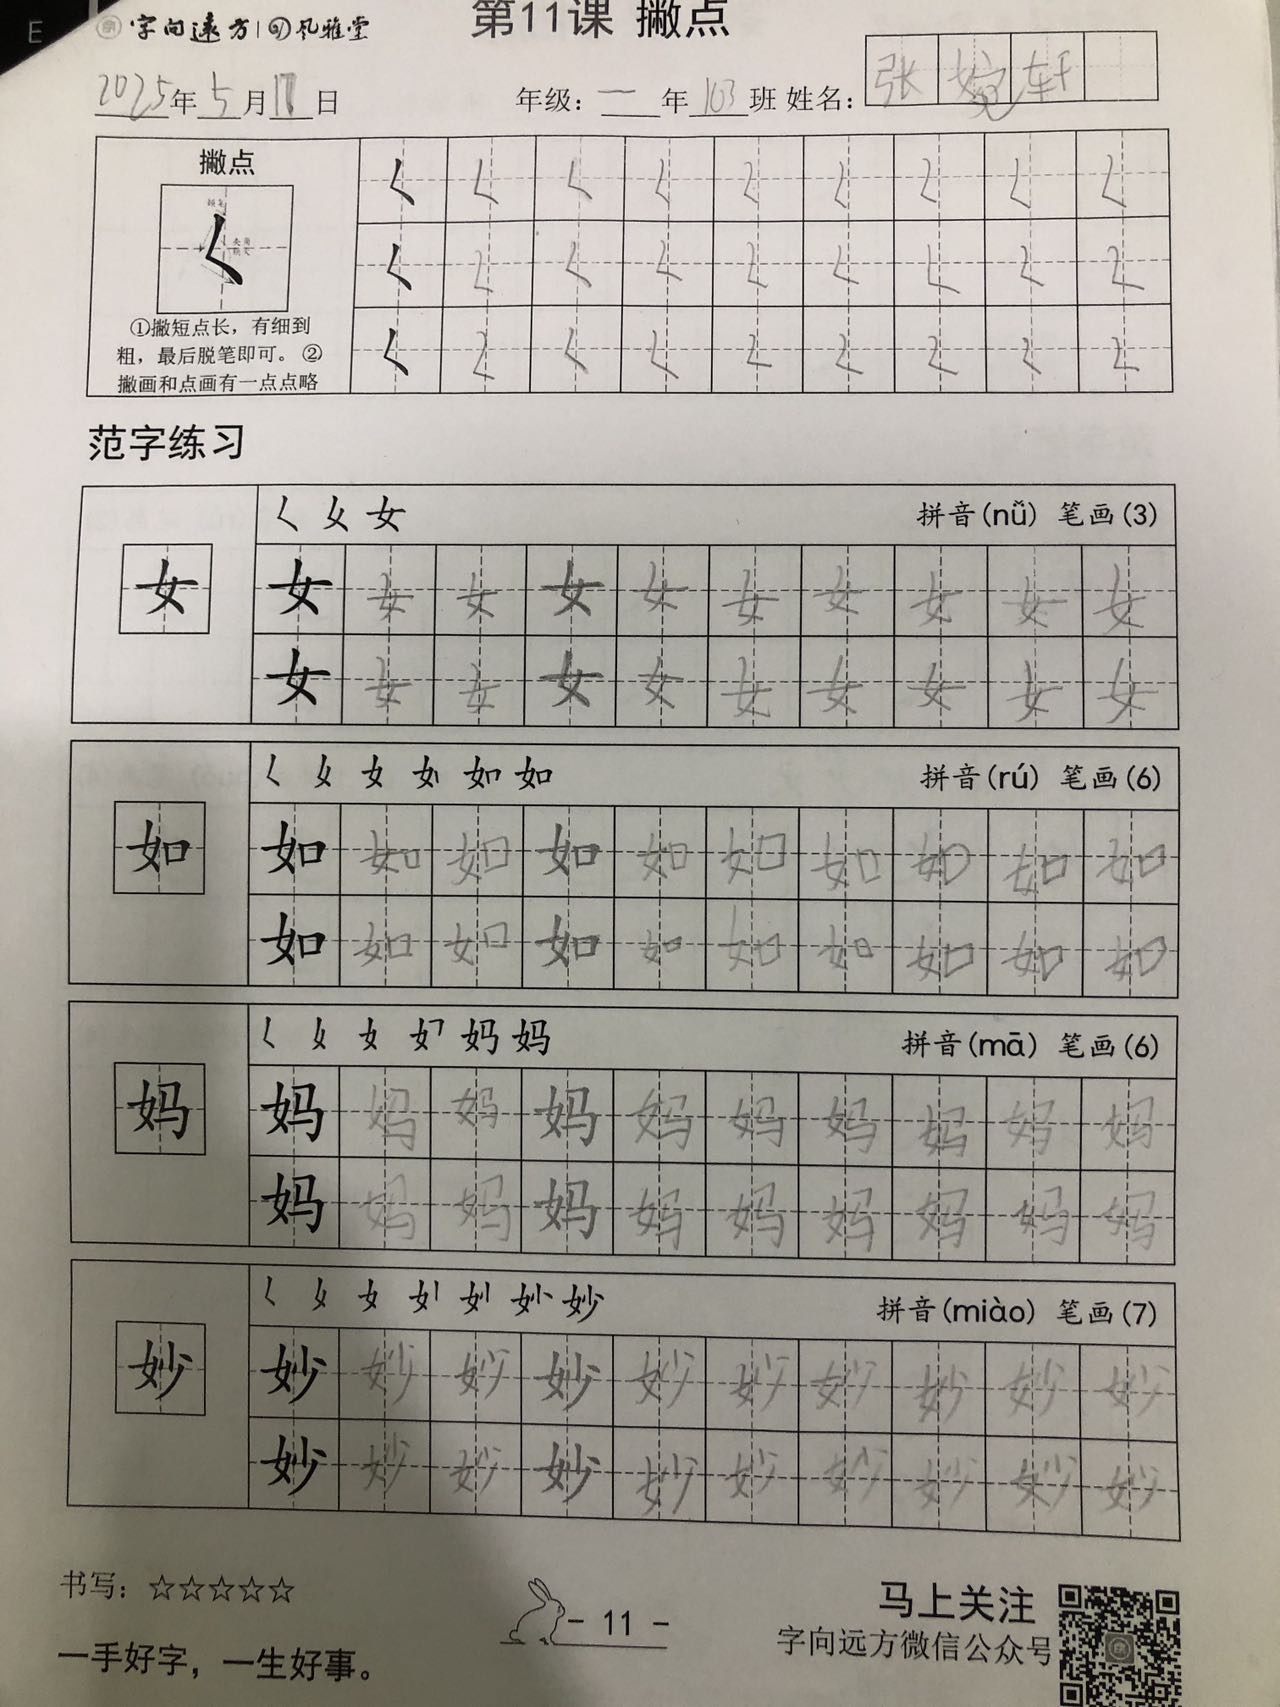 E
字向远方 风雅堂
第11课 撇点
2025年5月11日 年级：一年103班 姓名：张婉轩
撇点
①撇短点长，有细到
粗，最后脱笔即可。②
撇画和点画有一点点略
𡿨 𡿨 𡿨 𡿨 𡿨 𡿨 𡿨 𡿨 𡿨
𡿨 𡿨 𡿨 𡿨 𡿨 𡿨 𡿨 𡿨 𡿨
𡿨 𡿨 𡿨 𡿨 𡿨 𡿨 𡿨 𡿨 𡿨
范字练习
女 拼音(nǚ) 笔画(3)
女
女 女 女 女 女 女 女 女 女 女
女 女 女 女 女 女 女 女 女 女
如 拼音(rú) 笔画(6)
如
如 如 如 如 如 如 如 如 如 如
如 如 如 如 如 如 如 如 如 如
妈 拼音(mā) 笔画(6)
妈
妈 妈 妈 妈 妈 妈 妈 妈 妈 妈
妈 妈 妈 妈 妈 妈 妈 妈 妈 妈
妙 拼音(miào) 笔画(7)
妙
妙 妙 妙 妙 妙 妙 妙 妙 妙 妙
妙 妙 妙 妙 妙 妙 妙 妙 妙 妙
书写：☆☆☆☆☆
一手好字，一生好事。
- 11 -
马上关注
字向远方微信公众号